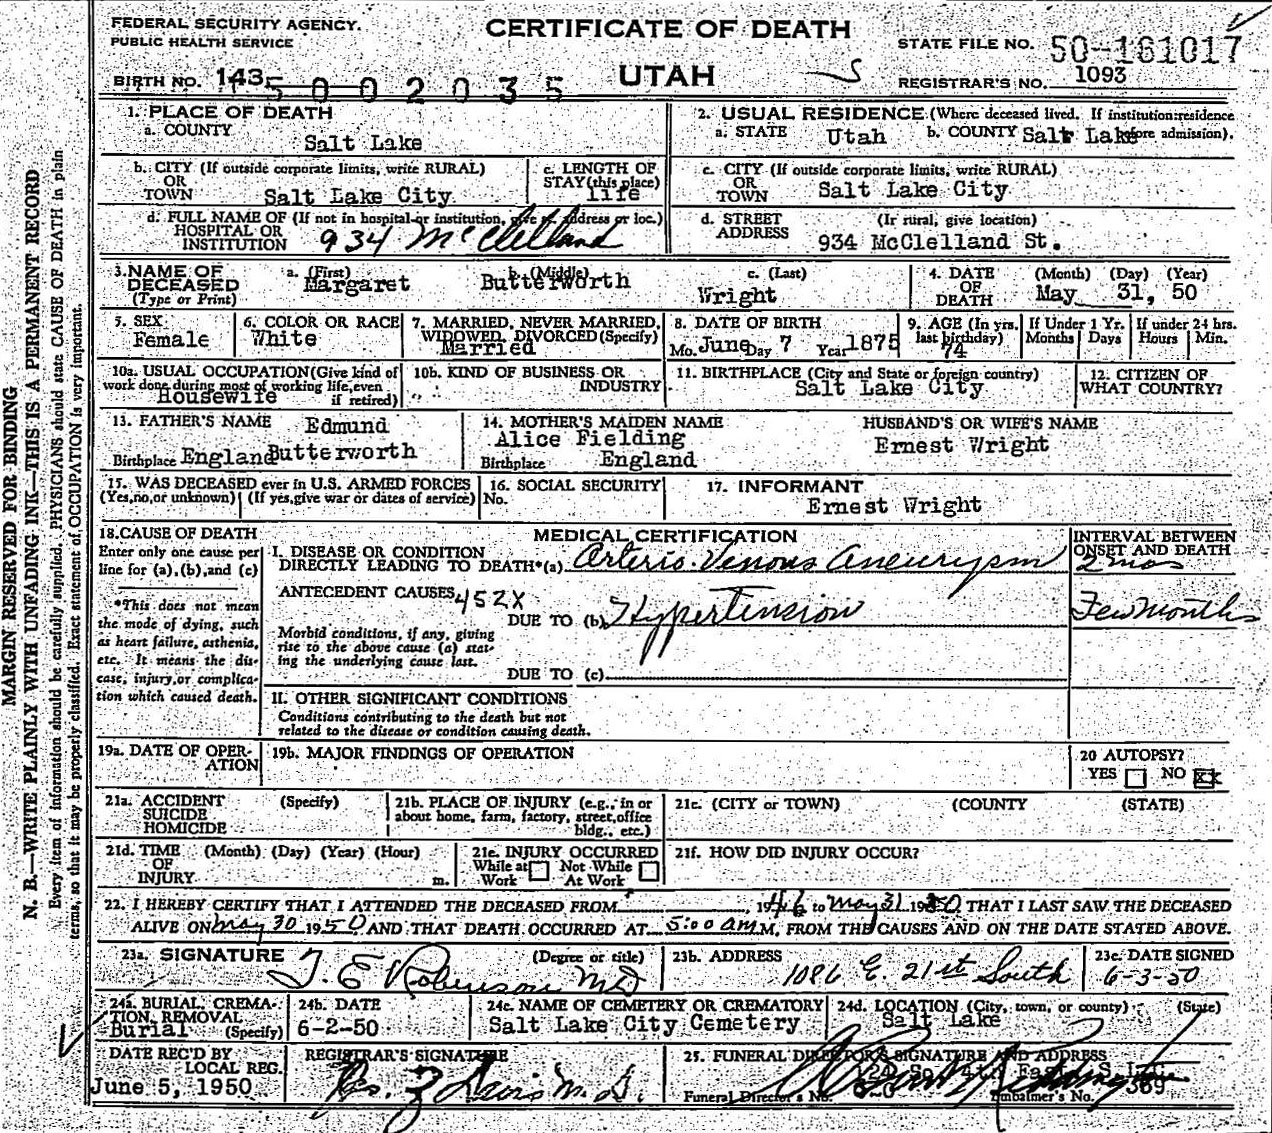 FEDERAL SECURITY AGENCY.
PUBLIC HEALTH SERVICE
BIRTH NO. 143
5 0 0 2 0 3 5
CERTIFICATE OF DEATH
UTAH
STATE FILE NO. 50-161017
REGISTRAR'S NO. 1093
MARGIN RESERVED FOR BINDING
N. B.—WRITE PLAINLY WITH UNFADING INK—THIS IS A PERMANENT RECORD
Every item of information should be carefully supplied. PHYSICIANS should state CAUSE OF DEATH in plain
terms, so that it may be properly classified. Exact statement of OCCUPATION is very important.
1. PLACE OF DEATH
a. COUNTY
Salt Lake
2. USUAL RESIDENCE (Where deceased lived. If institution:residence
a. STATE Utah b. COUNTY Salt Lake before admission).
b. CITY (If outside corporate limits, write RURAL)
OR
TOWN Salt Lake City
c. LENGTH OF
STAY (this place)
life
c. CITY (If outside corporate limits, write RURAL)
OR
TOWN Salt Lake City
d. FULL NAME OF (If not in hospital or institution, give st. address or loc.)
HOSPITAL OR
INSTITUTION 934 McClelland
d. STREET (If rural, give location)
ADDRESS 934 McClelland St.
3. NAME OF
DECEASED
(Type or Print)
a. (First)
Margaret
b. (Middle)
Butterworth
c. (Last)
Wright
4. DATE
OF
DEATH
(Month) (Day) (Year)
May 31, 50
5. SEX
Female
6. COLOR OR RACE
White
7. MARRIED, NEVER MARRIED,
WIDOWED, DIVORCED (Specify)
Married
8. DATE OF BIRTH
Mo. June Day 7 Year 1875
9. AGE (In yrs.
last birthday)
74
If Under 1 Yr.
Months Days
If under 24 hrs.
Hours Min.
10a. USUAL OCCUPATION (Give kind of
work done during most of working life, even
if retired)
Housewife
10b. KIND OF BUSINESS OR
INDUSTRY
11. BIRTHPLACE (City and State or foreign country)
Salt Lake City
12. CITIZEN OF
WHAT COUNTRY?
13. FATHER'S NAME Edmund
Butterworth
Birthplace England
14. MOTHER'S MAIDEN NAME
Alice Fielding
Birthplace England
HUSBAND'S OR WIFE'S NAME
Ernest Wright
15. WAS DECEASED ever in U.S. ARMED FORCES
(Yes, no, or unknown) (If yes, give war or dates of service)
16. SOCIAL SECURITY
No.
17. INFORMANT
Ernest Wright
18. CAUSE OF DEATH
Enter only one cause per
line for (a), (b), and (c)
*This does not mean
the mode of dying, such
as heart failure, asthenia,
etc. It means the dis-
ease, injury, or complica-
tion which caused death.
MEDICAL CERTIFICATION
I. DISEASE OR CONDITION
DIRECTLY LEADING TO DEATH*(a) Arterio-Venous Aneurysm
ANTECEDENT CAUSES 452X
DUE TO (b) Hypertension
Morbid conditions, if any, giving
rise to the above cause (a) stat-
ing the underlying cause last.
DUE TO (c)
INTERVAL BETWEEN
ONSET AND DEATH
2 mos
Few Months
II. OTHER SIGNIFICANT CONDITIONS
Conditions contributing to the death but not
related to the disease or condition causing death.
19a. DATE OF OPER-
ATION
19b. MAJOR FINDINGS OF OPERATION
20 AUTOPSY?
YES NO xx
21a. ACCIDENT
SUICIDE
HOMICIDE
(Specify)
21b. PLACE OF INJURY (e.g., in or
about home, farm, factory, street, office
bldg., etc.)
21c. (CITY or TOWN) (COUNTY (STATE)
21d. TIME (Month) (Day) (Year) (Hour)
OF
INJURY m.
21e. INJURY OCCURRED
While at Not While
Work At Work
21f. HOW DID INJURY OCCUR?
22. I HEREBY CERTIFY THAT I ATTENDED THE DECEASED FROM , 1946 to May 31 1950, THAT I LAST SAW THE DECEASED
ALIVE ON May 30 1950 AND THAT DEATH OCCURRED AT 5:00 am M, FROM THE CAUSES AND ON THE DATE STATED ABOVE.
23a. SIGNATURE (Degree or title)
T. E. Robinson MD
23b. ADDRESS
1086 E. 21st South
23c. DATE SIGNED
6-3-50
24a. BURIAL, CREMA-
TION, REMOVAL
Burial (Specify)
24b. DATE
6-2-50
24c. NAME OF CEMETERY OR CREMATORY
Salt Lake City Cemetery
24d. LOCATION (City, town, or county) (State)
Salt Lake
DATE REC'D BY
LOCAL REG.
June 5, 1950
REGISTRAR'S SIGNATURE
25. FUNERAL DIRECTOR'S SIGNATURE AND ADDRESS
Funeral Director's No.
Embalmer's No. 369